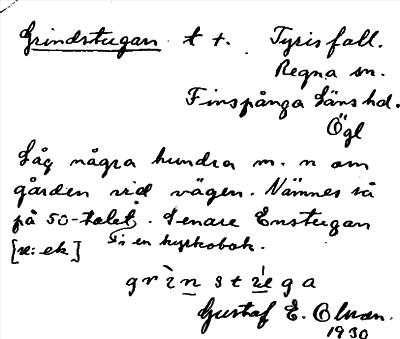 Grindstugan t t. Tyrisfall.
Regna sn.
Finspånga läns hd.
Ögl
Låg några hundra m. n om
gården vid vägen. Nämnes så
på 50-talet. Senare Enstugan
[se: ek] i en kyrkobok.
grìnstúga
Gustaf E. Olson.
1930